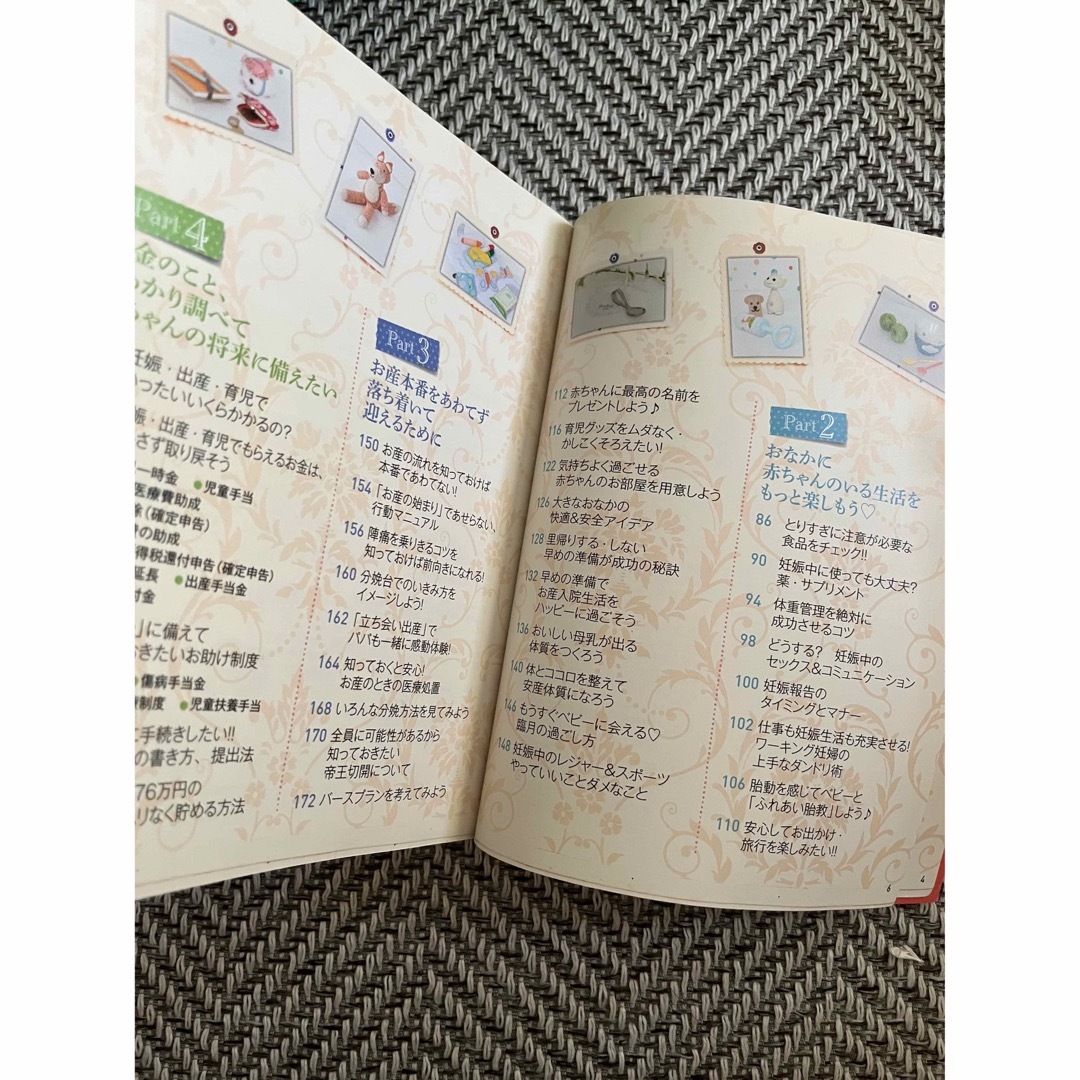 Part 2
おなかに
赤ちゃんのいる生活を
もっと楽しもう♡
86 とりすぎに注意が必要な
食品をチェック!!
90 妊娠中に使っても大丈夫?
薬・サプリメント
94 体重管理を絶対に
成功させるコツ
98 どうする? 妊娠中の
セックス&コミュニケーション
100 妊娠報告の
タイミングとマナー
102 仕事も妊娠生活も充実させる!
ワーキング妊婦の
上手なダンドリ術
106 胎動を感じてベビーと
「ふれあい胎教」しよう♪
110 安心してお出かけ・
旅行を楽しみたい!!
112 赤ちゃんに最高の名前を
プレゼントしよう♪
116 育児グッズをムダなく・
かしこくそろえたい!
122 気持ちよく過ごせる
赤ちゃんのお部屋を用意しよう
126 大きなおなかの
快適&安全アイデア
128 里帰りする・しない
早めの準備が成功の秘訣
132 早めの準備で
お産入院生活を
ハッピーに過ごそう
136 おいしい母乳が出る
体質をつくろう
140 体とココロを整えて
安産体質になろう
146 もうすぐベビーに会える♡
臨月の過ごし方
148 妊娠中のレジャー&スポーツ
やっていいことダメなこと
6
4
Part 3
お産本番をあわてず
落ち着いて
迎えるために
150 お産の流れを知っておけば
本番であわてない!
154 「お産の始まり」であせらない、
行動マニュアル
156 陣痛を乗りきるコツを
知っておけば前向きになれる!
160 分娩台でのいきみ方を
イメージしよう!
162 「立ち会い出産」で
パパも一緒に感動体験!
164 知っておくと安心!
お産のときの医療処置
168 いろんな分娩方法を見てみよう
170 全員に可能性があるから
知っておきたい
帝王切開について
172 バースプランを考えてみよう
Part 4
金のこと、
かり調べて
ちゃんの将来に備えたい
妊娠・出産・育児で
いったいいくらかかるの?
娠・出産・育児でもらえるお金は、
さず取り戻そう
一時金 ●児童手当
医療費助成
除(確定申告)
の助成
得税還付申告(確定申告)
延長 ●出産手当金
付金
」に備えて
おきたいお助け制度
●傷病手当金
制度 ●児童扶養手当
に手続きしたい!!
の書き方、提出法
76万円の
リなく貯める方法